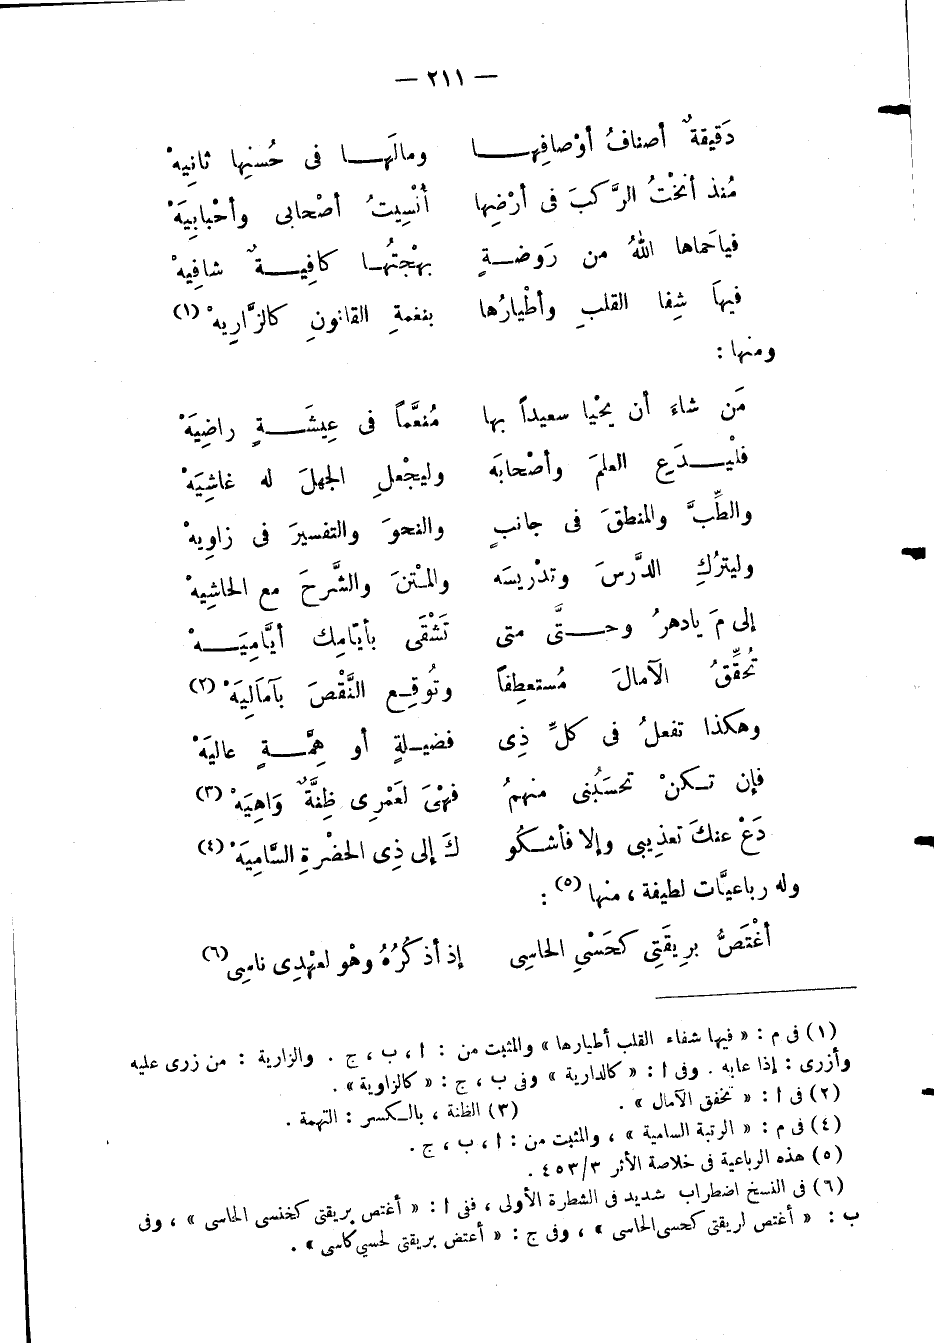 — ٢١١ —
دَقيقةٌ أصنافُ أوْصافِهـــا ومالَهـــا فى حُسنِها ثانِيهْ
مُنذ أنَخْتُ الرَّكبَ فى أرْضِها أُنْسِيتُ أصْحابى وأحْبابِيَهْ
فياحَماها اللهُ من رَوضــةٍ بهْجتُهــا كافِيــةٌ شافِيهْ
فيهاَ شِفا القلبِ وأطْيارُها بنغمةِ القانونِ كالزَّارِيهْ (١)
ومنها :
مَن شاءَ أن يحْيا سعيداً بها مُنعَّماً فى عِيشَــةٍ راضِيَهْ
فلْيــدَعِ العلمَ وأصْحابَه وليجْعلِ الجهلَ له غاشِيَهْ
والطِّبَّ والمنطقَ فى جانبٍ والنحوَ والتفسيرَ فى زاوِيهْ
وليترُكِ الدَّرسَ وتدْريسَه والمْتنَ والشَّرحَ مع الحاشِيهْ
إلى مَ يادهرُ وحــتَّى متى تَشْقَى بأيّامِك أيَّامِيَــهْ
تُحقِّقُ الآمالَ مُستعطِفاً وتُوقِـع النَّقْصَ بآمَالِيَهْ (٢)
وهَكذا تفعلُ فى كلِّ ذِى فضيـلةٍ أو هِمَّــةٍ عاليَهْ
فإن تـكنْ تحسَبُنى منهمُ فهْىَ لعَمْرِى ظِنَّةٌ وَاهِيَهْ (٣)
دَعْ عنكَ تعذِيبى وإلا فأشـكُو كَ إلى ذِى الحضْرةِ السَّامِيَهْ (٤)
وله رباعيَّات لطيفة ، منها (٥) :
أغْتَصُّ برِيقَتِى كحَسْىِ الحاسِى إذ أذكُرُهُ وهْو لعهْدِى ناسِى (٦)
(١) فى م : « فيها شفاء القلب أطيارها » والمثبت من : ا ، ب ، ج . والزارية : من زرى عليه
وأزرى : إذا عابه . وفى ا : « كالدارية » وفى ب ، ج : « كالزاوية » .
(٢) فى ا : « تخفق الآمال » . (٣) الظنة ، بالـكسر : التهمة .
(٤) فى م : « الرتبة السامية » ، والمثبت من : ا ، ب ، ج .
(٥) هذه الرباعية فى خلاصة الأثر ٤٥٣/٣ .
(٦) فى النسخ اضطراب شديد فى الشطرة الأولى ، ففى ا : « أغتص بريقتى كخنسى الحاسى » ، وفى
ب : « أغتص لريقتى كحسى الحاسى » ، وفى ج : « أعتض بريقتى لحسي كاسى » .